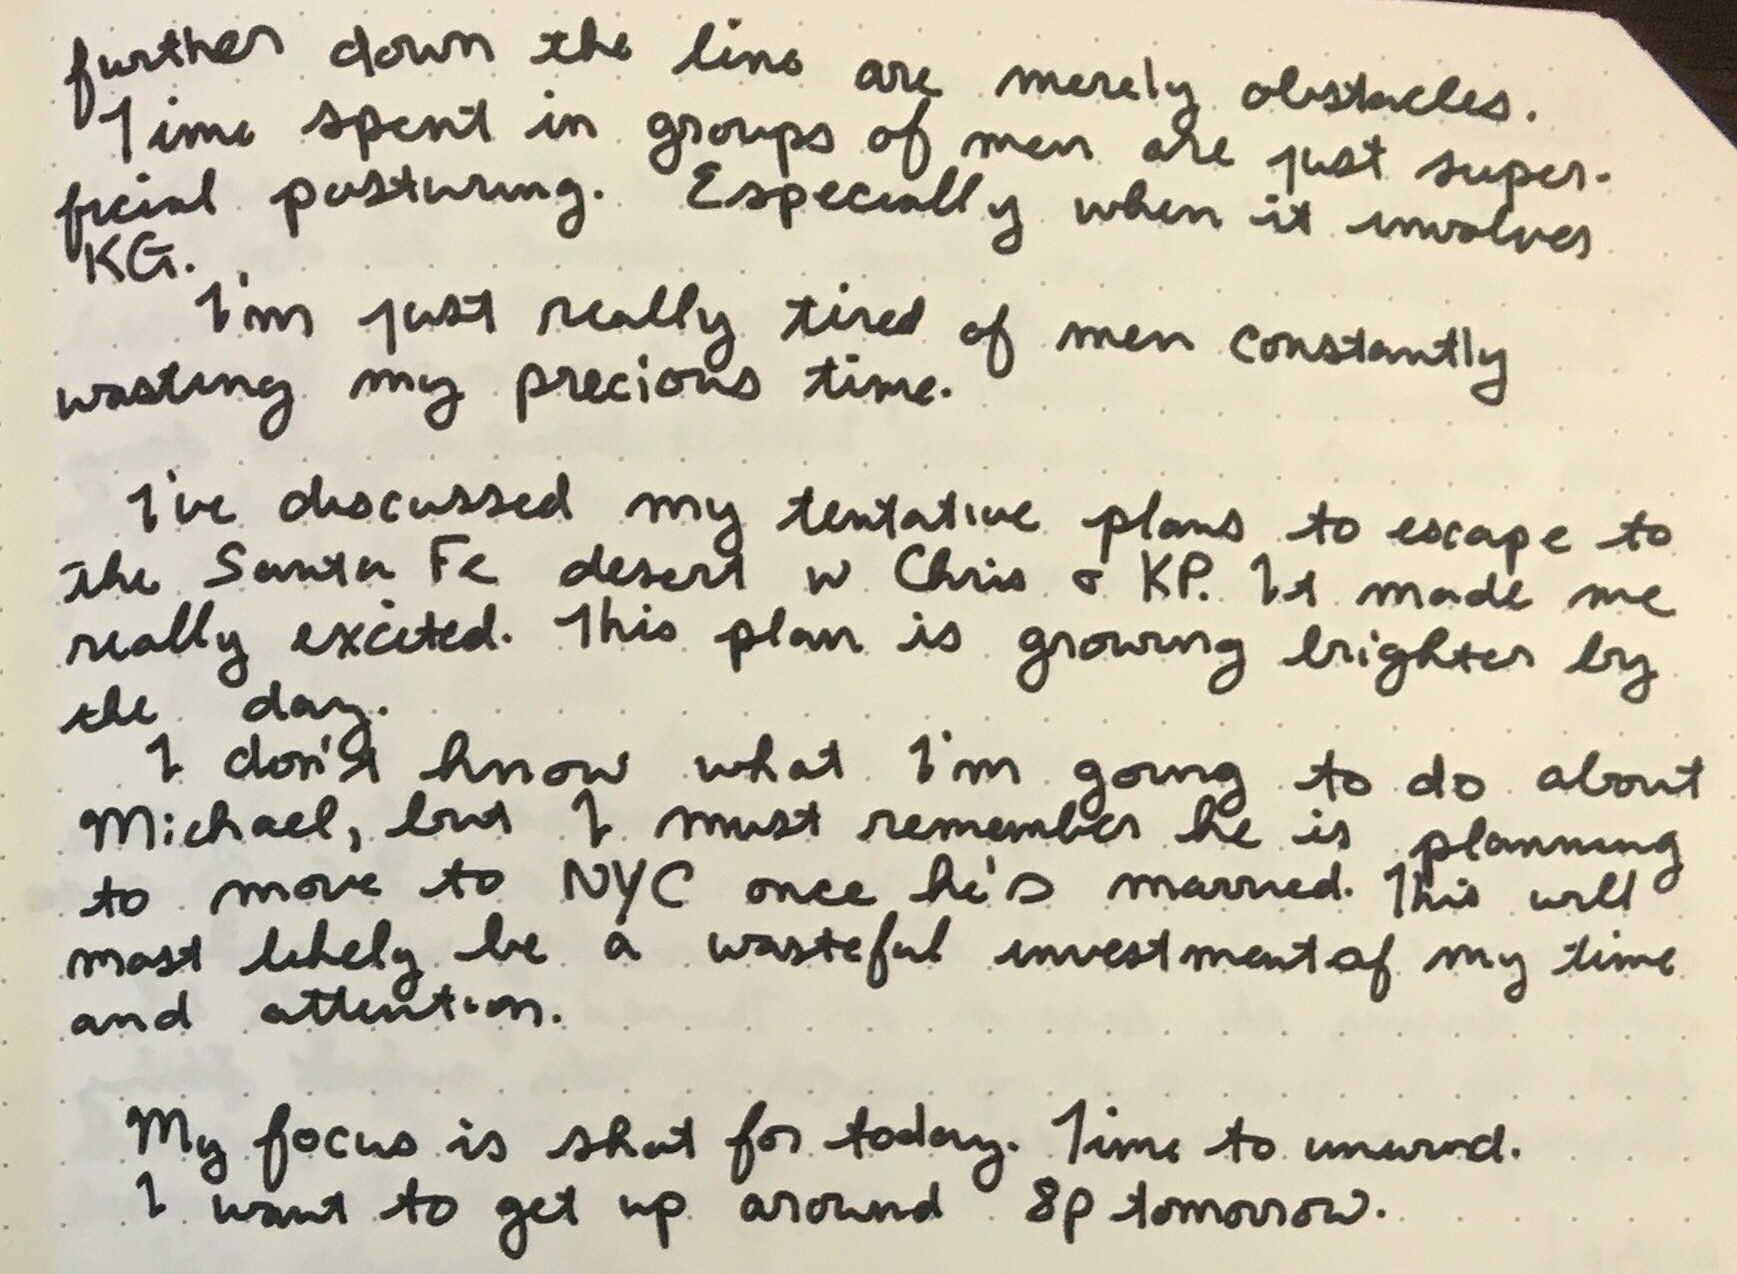 further down the line are merely obstacles.
Time spent in groups of men are just super-
ficial posturing. Especially when it involves
KG.
I'm just really tired of men constantly
wasting my precious time.
I've discussed my tentative plans to escape to
the Santa Fe desert w Chris & KP. It made me
really excited. This plan is growing brighter by
the day.
I don't know what I'm going to do about
Michael, but I must remember he is planning
to move to NYC once he's married. This will
most likely be a wasteful investment of my time
and attention.
My focus is shot for today. Time to unwind.
I want to get up around 8p tomorrow.